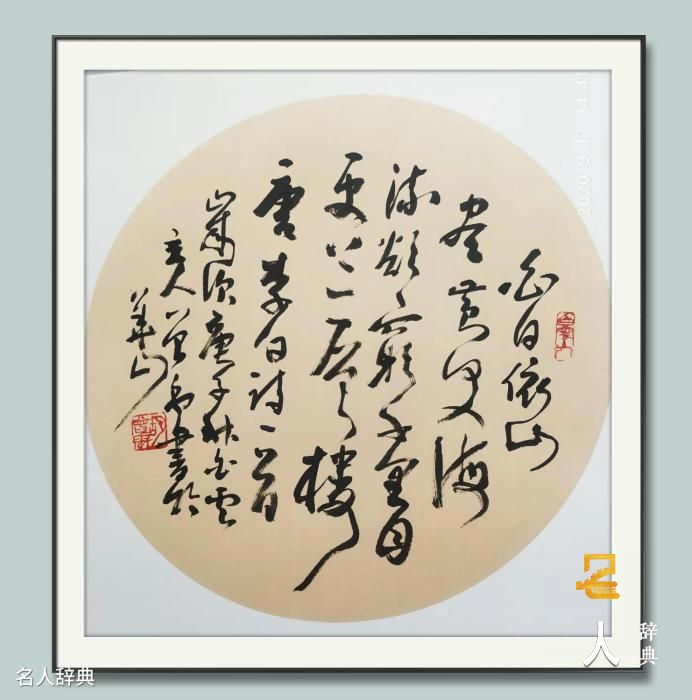 白日依山
尽黄河入海
流欲穷千里目
更上一层楼
唐李白诗一首
岁次庚子秋白云
主人书於
华山
2020/9/17 14:41
名人辞典
人
辞典